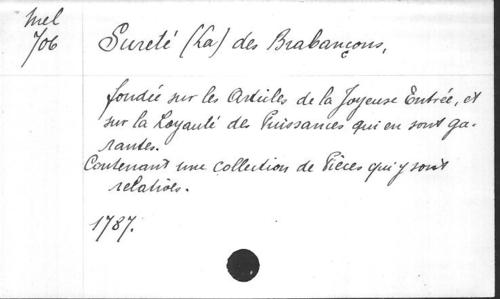 Mel
706
Sureté (La) des Brabançons,
fondée sur les Articles de la Joyeuse Entrée, et
sur la Loyauté des Puissances qui en sont ga-
rantes.
Contenant une collection de Pièces qui y sont
relatives.
1787.